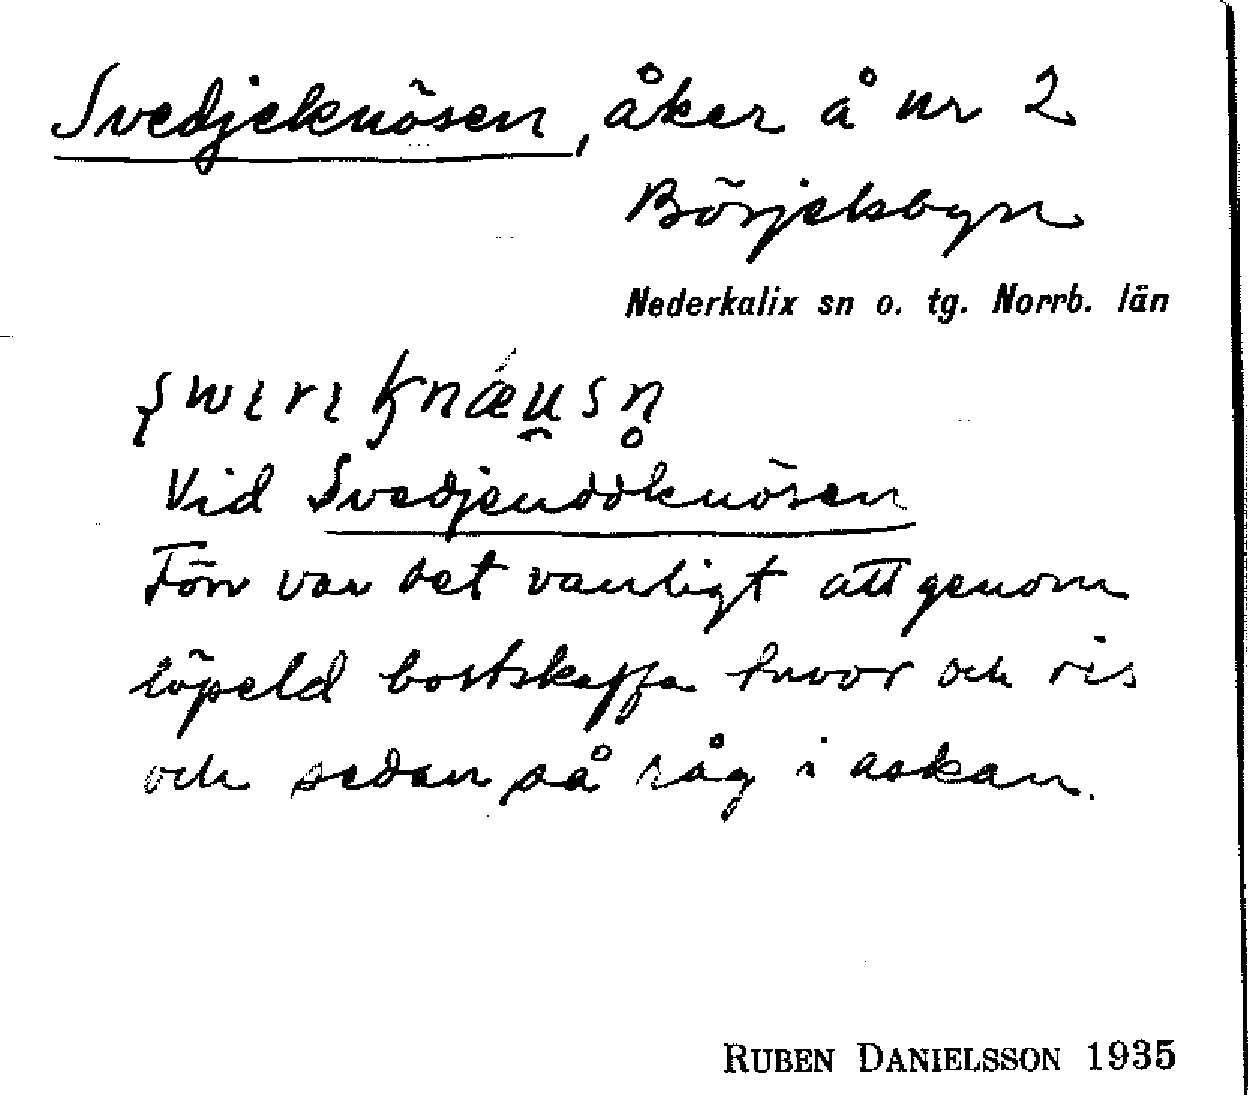 Svedjeknösen, åker å nr 2
Börjelsbyn
Nederkalix sn o. tg. Norrb. län
Vid Svedjeuddknösen
Förr var det vanligt att genom
löpeld bortskaffa tuvor och ris
och sedan så råg i askan.
RUBEN DANIELSSON 1935